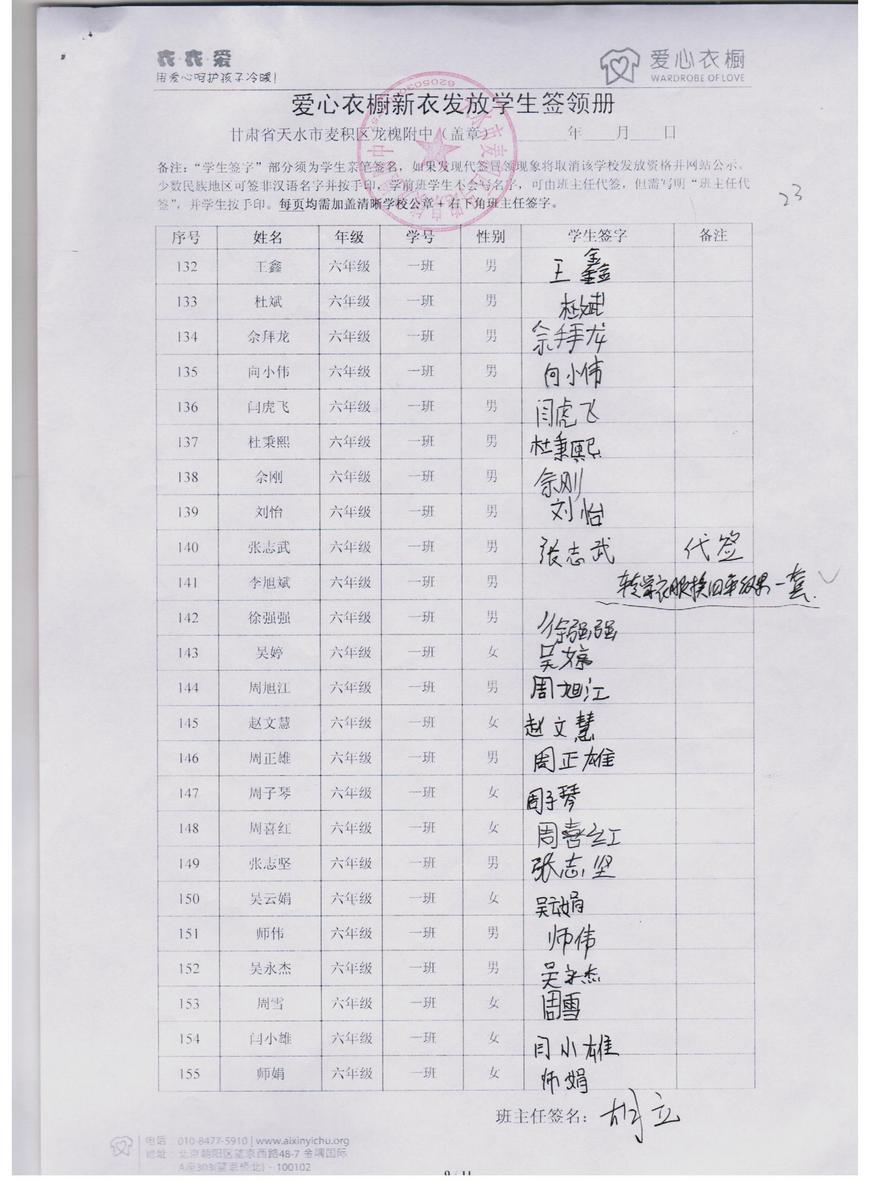 衣·衣·爱
用爱心呵护孩子冷暖!
爱心衣橱
WARDROBE OF LOVE
爱心衣橱新衣发放学生签领册
甘肃省天水市麦积区龙槐附中（盖章） 年 月 日
备注：“学生签字”部分须为学生亲笔签名，如果发现代签冒领现象将取消该学校发放资格并网站公示。
少数民族地区可签非汉语名字并按手印，学前班学生不会写名字，可由班主任代签，但需写明“班主任代
签”，并学生按手印。每页均需加盖清晰学校公章+右下角班主任签字。
23
序号 姓名 年级 学号 性别 学生签字 备注
132 王鑫 六年级 一班 男 王鑫
133 杜斌 六年级 一班 男 杜斌
134 佘拜龙 六年级 一班 男 佘拜龙
135 向小伟 六年级 一班 男 向小伟
136 闫虎飞 六年级 一班 男 闫虎飞
137 杜秉熙 六年级 一班 男 杜秉熙
138 佘刚 六年级 一班 男 佘刚
139 刘怡 六年级 一班 男 刘怡
140 张志武 六年级 一班 男 张志武 代签
141 李旭斌 六年级 一班 男 转学衣服换四年级男一套.
142 徐强强 六年级 一班 男 徐强强
143 吴婷 六年级 一班 女 吴婷
144 周旭江 六年级 一班 男 周旭江
145 赵文慧 六年级 一班 女 赵文慧
146 周正雄 六年级 一班 男 周正雄
147 周子琴 六年级 一班 女 周子琴
148 周喜红 六年级 一班 女 周喜红
149 张志坚 六年级 一班 男 张志坚
150 吴云娟 六年级 一班 女 吴云娟
151 师伟 六年级 一班 男 师伟
152 吴永杰 六年级 一班 男 吴永杰
153 周雪 六年级 一班 女 周雪
154 闫小雄 六年级 一班 女 闫小雄
155 师娟 六年级 一班 女 师娟
班主任签名：胡立
电话 010-8477-5910 | www.aixinyichu.org
地址：北京朝阳区望京西路48-7 金隅国际
A座303(望京桥北) - 100102
9 / 11